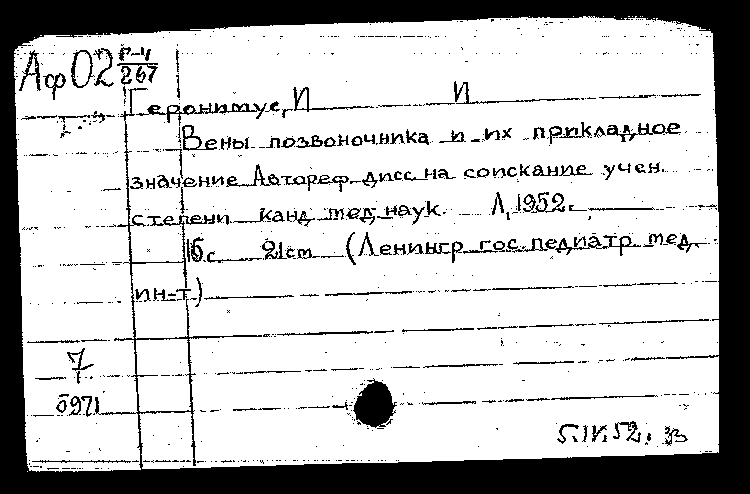 Аф02 Г-4/267
Геронимус, И И
Вены позвоночника и их прикладное
значение Автореф дисс на соискание учен.
степени канд мед наук. Л, 1952.
16с 21см (Ленингр гос. педиатр мед.
ин-т)
7
5971
5.IV.52.